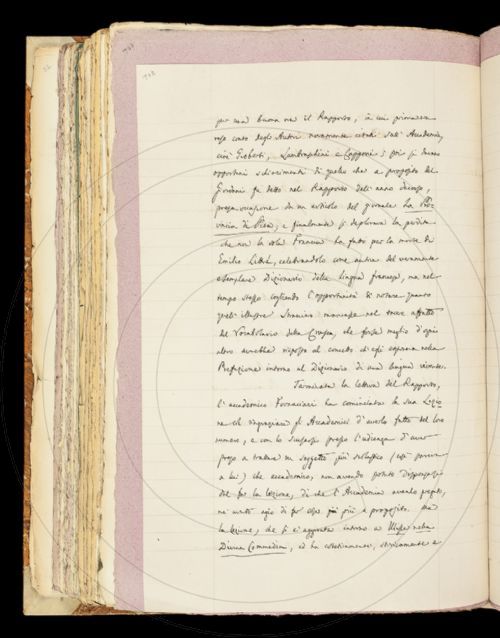 per una buona ora il Rapporto, in cui primiera-
rese conto degli Autori novamente citati dall'Accademia,
cioè Gioberti, Lambruschini e Capponi; poi si
opportuni schiarimenti di quello che a proposito del
Giordani fu detto nel Rapporto dell'anno decorso,
presa occasione da un articolo del giornale la Pro-
vincia di Pisa; e finalmente si deplorava la perdita
che non la sola Francia ha fatto per la morte di
Emilio Littré, celebrandolo come autore del veramente
esemplare Dizionario della lingua francese, ma nel
tempo stesso cogliendo l'opportunità di notare quanto
quell'illustre nel affatto
del Vocabolario della Crusca, che forse meglio d'ogni
altro avrebbe risposto al concetto ch'egli espresse nella
Prefazione intorno al Dizionario di una lingua vivente.
Terminata la lettura del Rapporto,
l'accademico Fornaciari ha cominciata la sua Lezio-
ne col ringraziare gli Accademici d'averlo fatto del loro
numero, e con lo scusarsi presso l'udienza d'aver
preso a trattare un soggetto più scolastico (così
a lui) che accademico, non avendo potuto dispensarsi
dal far la lezione, di che l'Accademia avealo
nè avuto agio di far cosa più a proposito. Ma
la lezione, che si è aggirata intorno a Ulisse nella
Divina Commedia, ed ha esteticamente, storicamente e